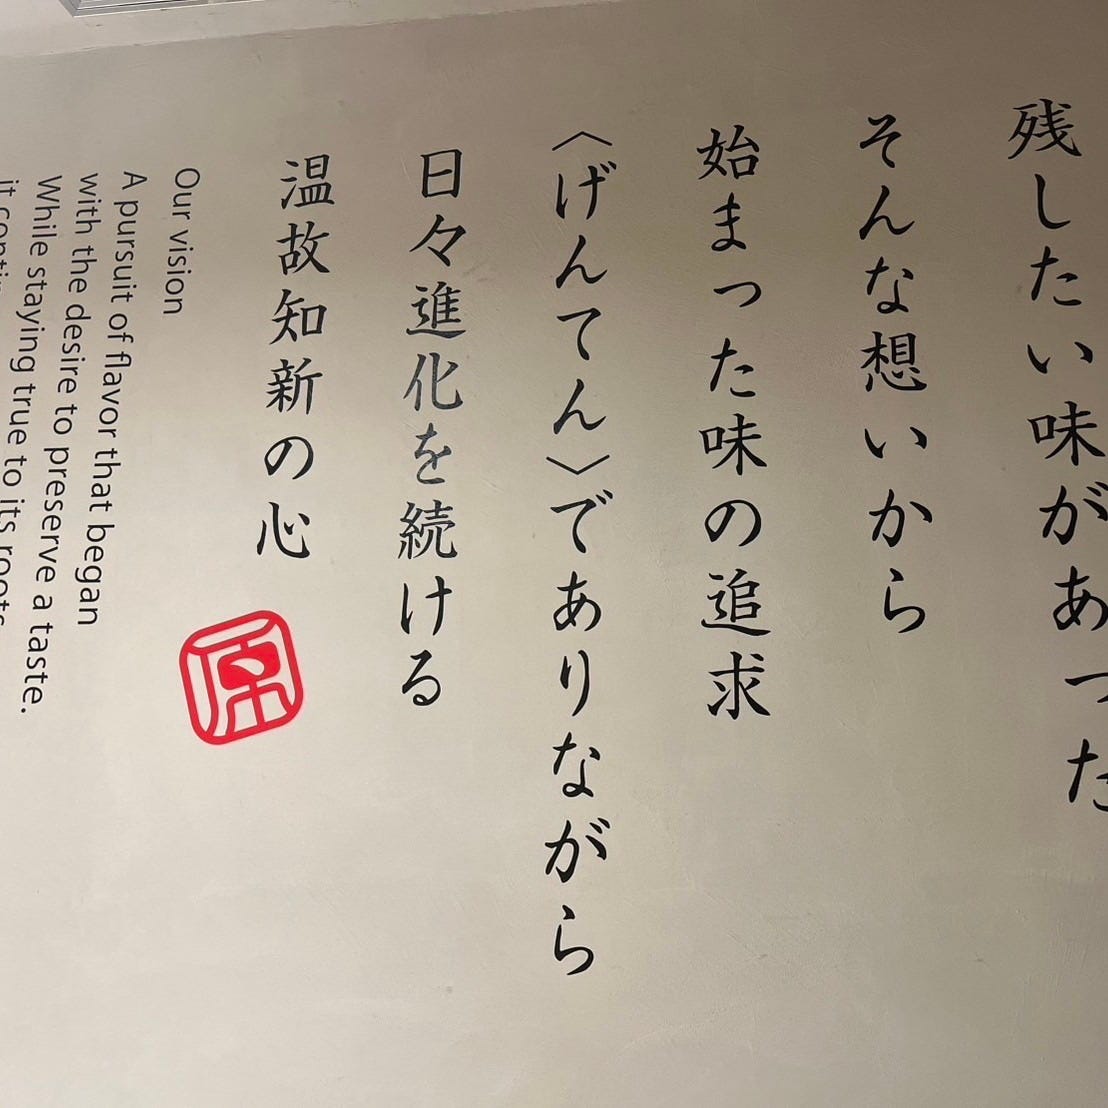 残したい味があった
そんな想いから
始まった味の追求
〈げんてん〉でありながら
日々進化を続ける
温故知新の心
原
Our vision
A pursuit of flavor that began
with the desire to preserve a taste.
While staying true to its roots,